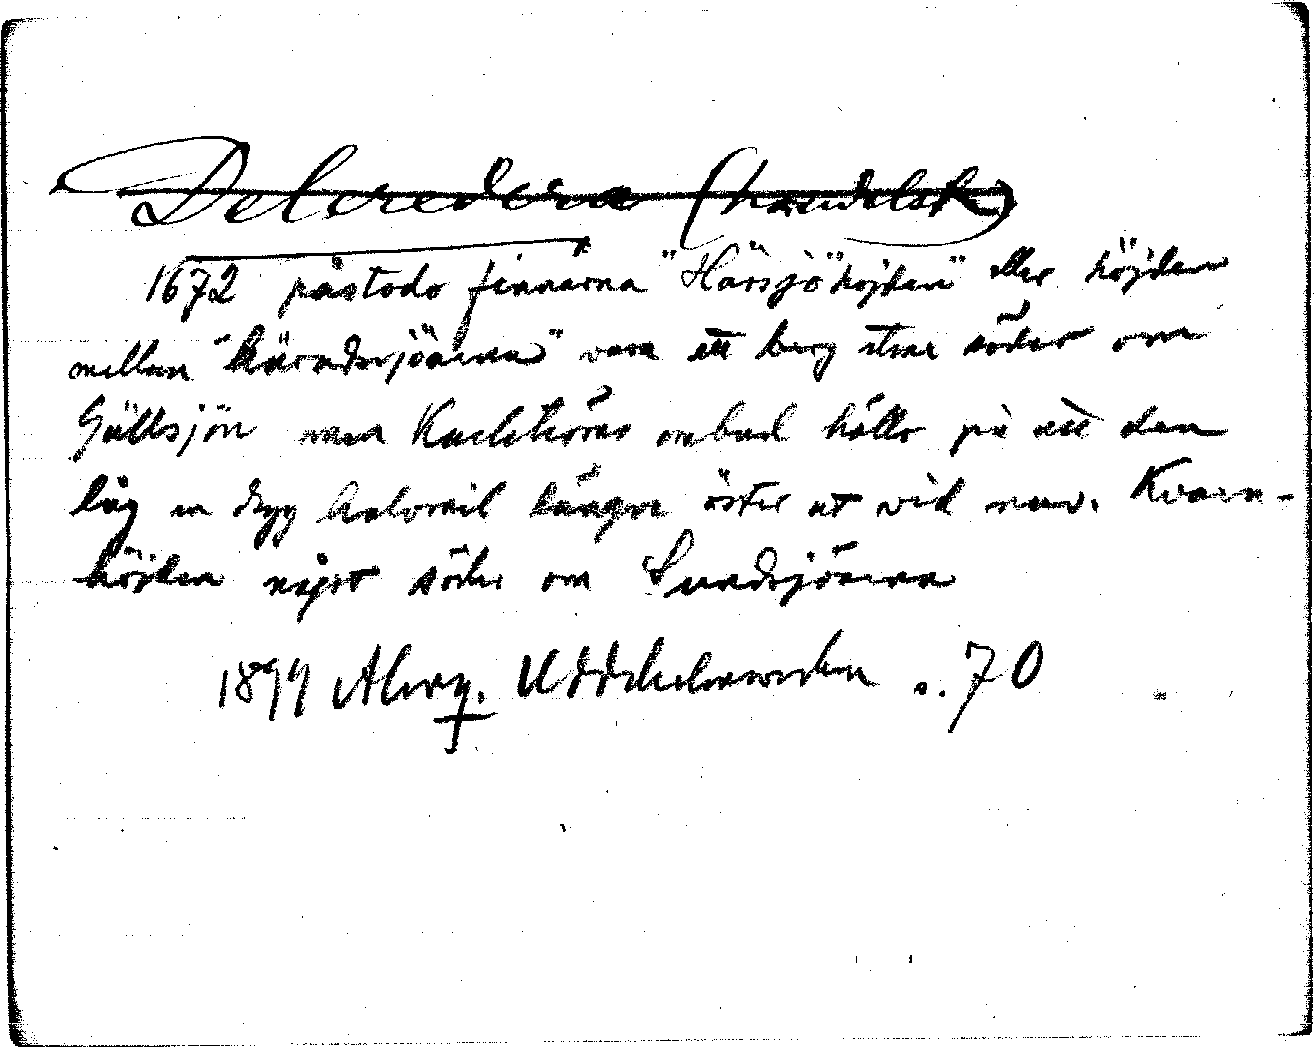 Delcredera (handelsk)
1672 påstodo finnarna "Härsjöhöjden" eller höjden
mellan "Härndsjöarna" vara ett berg strax söder om
Gällsjön men Karlströms ombud höllo på att den
låg en dryg halvmil längre öster ut vid nuv. Kvarn-
höjden något söder om Sundsjöarna
1899 Almq. Uddeholmsverken s. 70